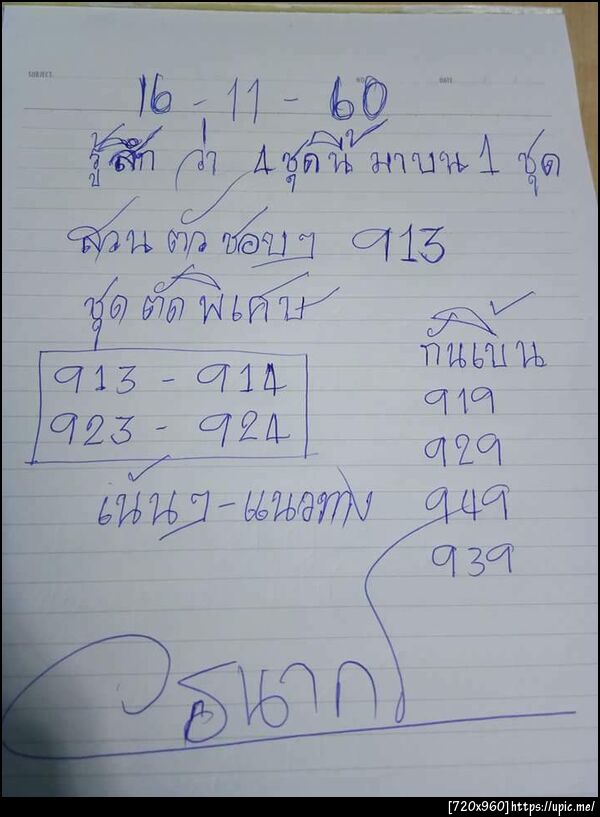 SUBJECT
NO.
DATE
16 - 11 - 60
รู้สึก ว่า 4 ชุดนี้ มาบน 1 ชุด
สวน ตัว ชอบๆ 913
ชุด ตัด พิเศษ
913 - 914
923 - 924
เน้นๆ - แนวทาง
กันเบิ้น
919
929
949
939
ธนากร
[720x960]https://upic.me/